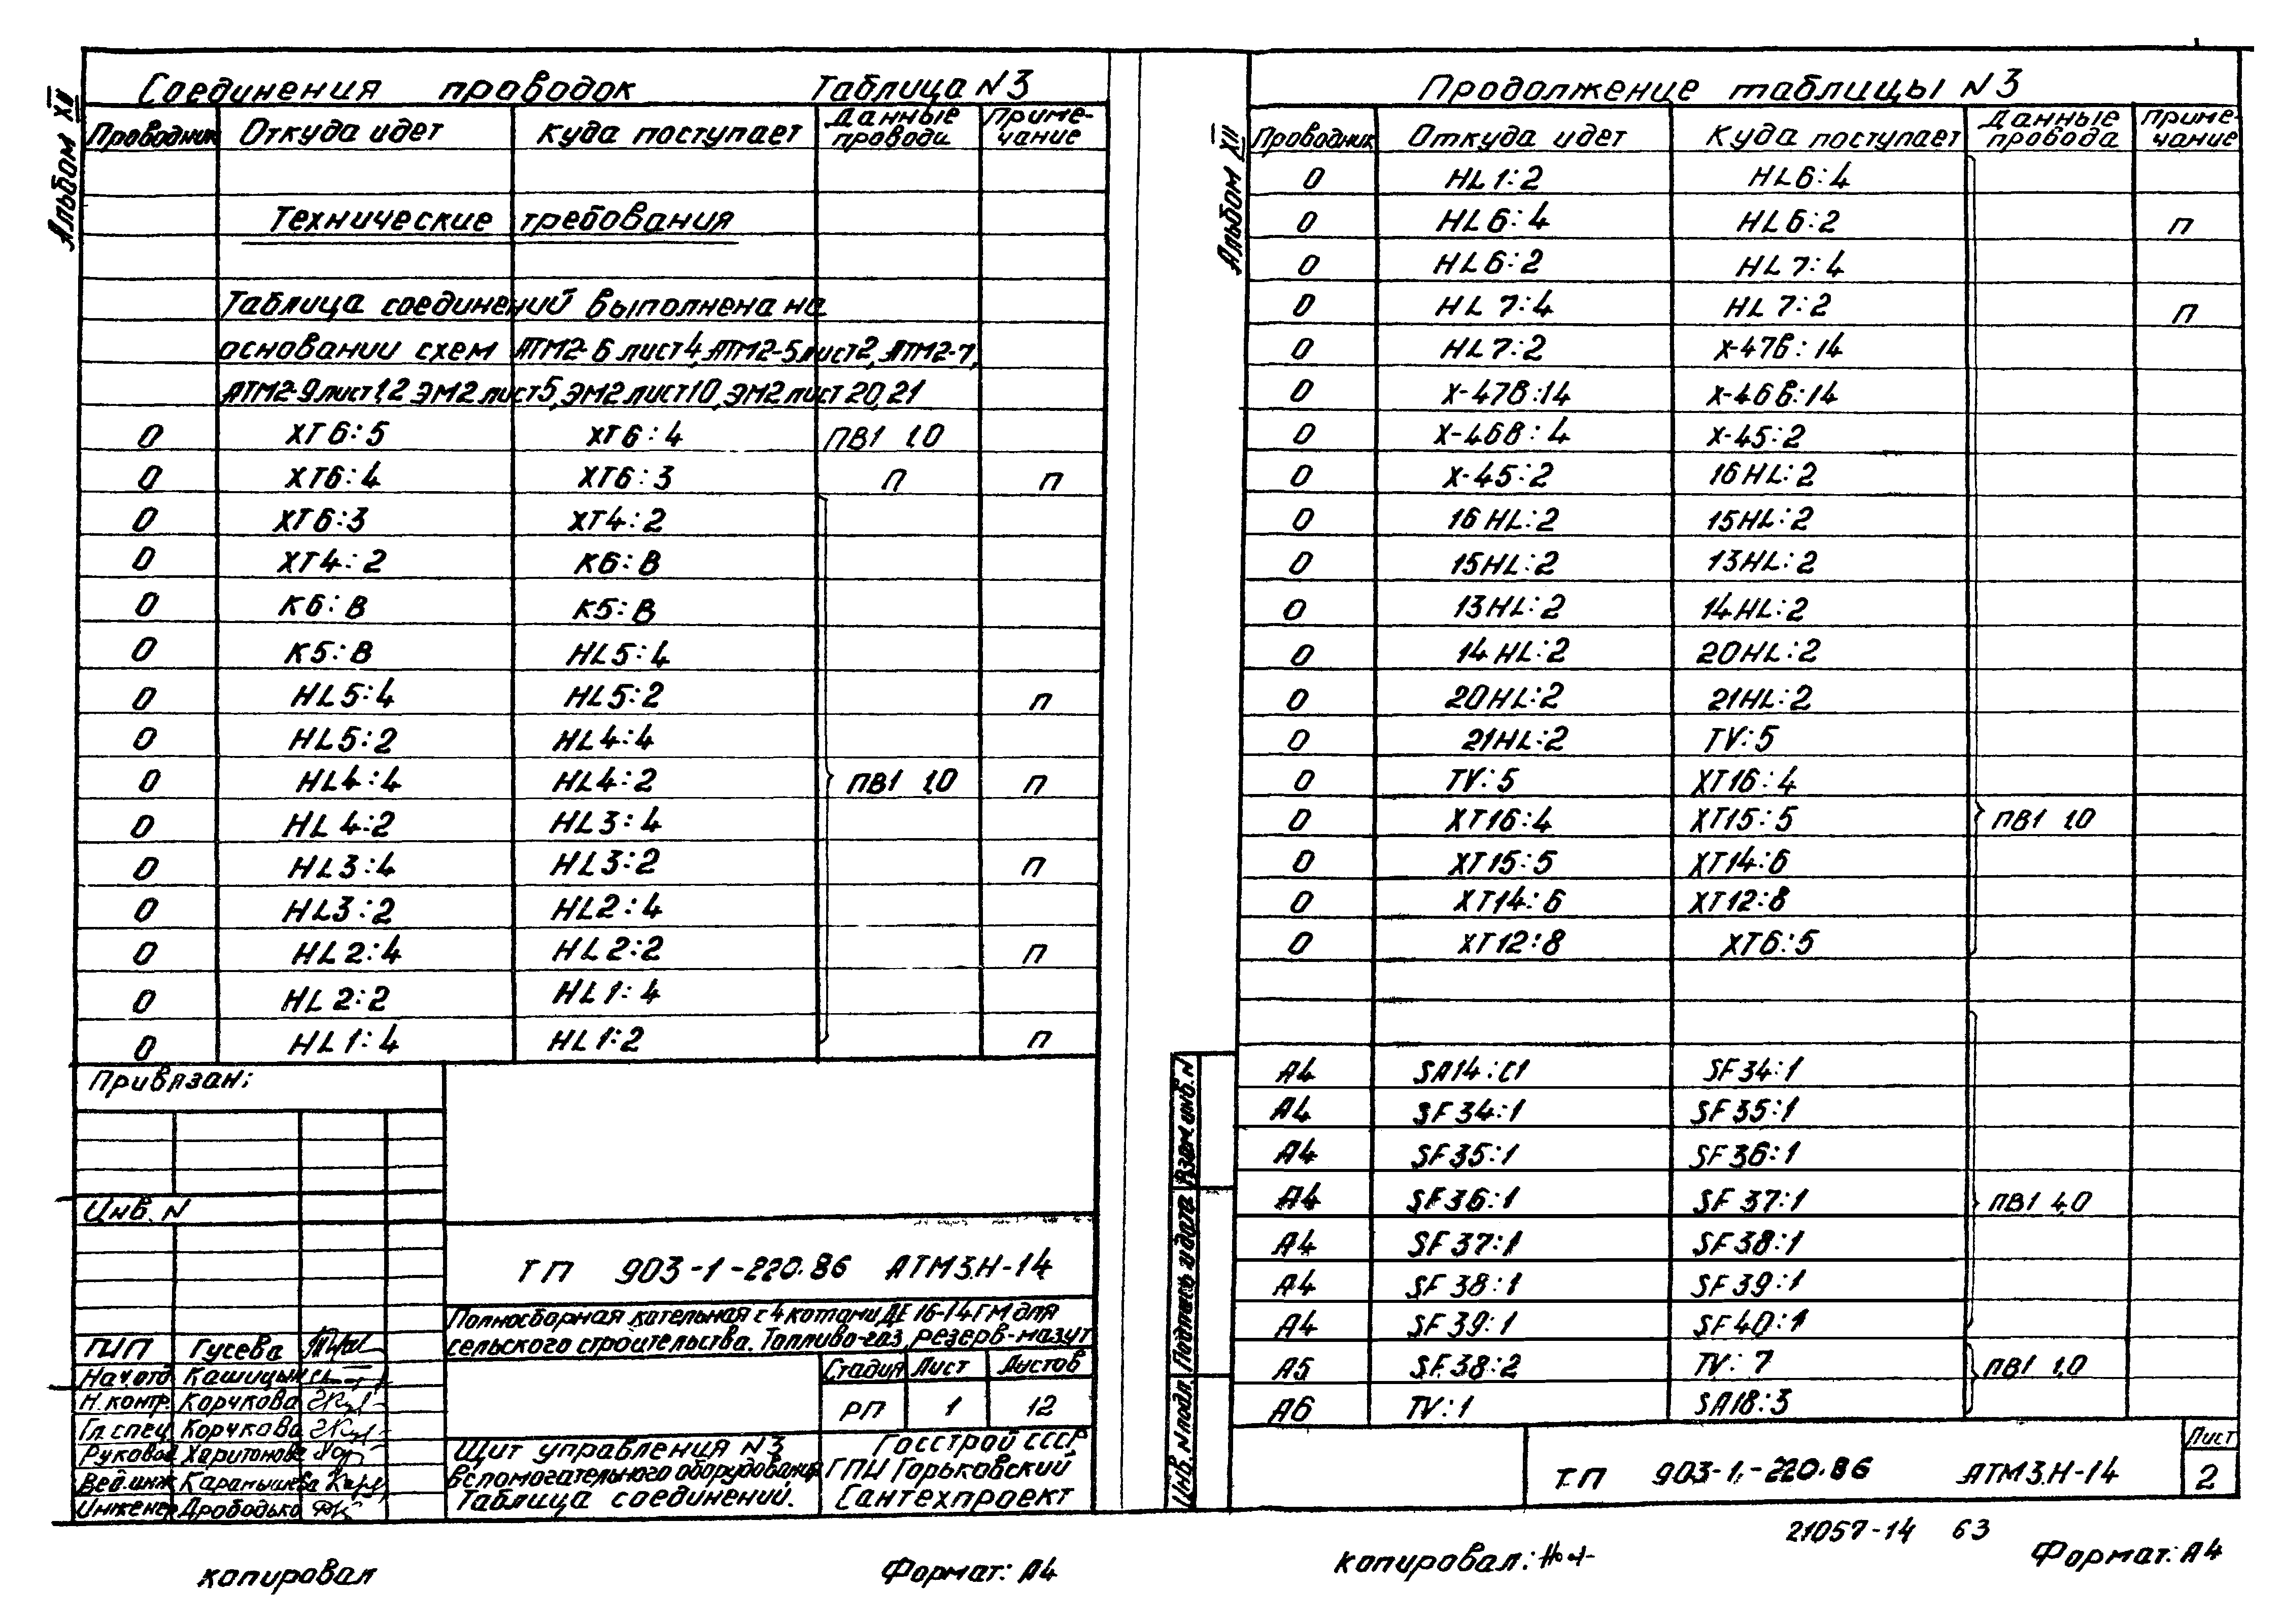 Альбом XII
Соединения проводок Таблица N3
Проводник Откуда идет Куда поступает Данные провода Примечание
Технические требования
Таблица соединений выполнена на
основании схем АТМ2-6 лист 4, АТМ2-5 лист 2, АТМ2-7,
АТМ2-9 лист 1,2 ЭМ2 лист 5, ЭМ2 лист 10, ЭМ2 лист 20,21
0 ХТ6:5 ХТ6:4 ПВ1 1,0
0 ХТ6:4 ХТ6:3 п п
0 ХТ6:3 ХТ4:2
0 ХТ4:2 К6:В
0 К6:В К5:В
0 К5:В HL5:4
0 HL5:4 HL5:2 п
0 HL5:2 HL4:4
0 HL4:4 HL4:2 ПВ1 1,0 п
0 HL4:2 HL3:4
0 HL3:4 HL3:2 п
0 HL3:2 HL2:4
0 HL2:4 HL2:2 п
0 HL2:2 HL1:4
0 HL1:4 HL1:2 п
Привязан:
Инв. N
ТП 903-1-220.86 АТМ3.Н-14
Полносборная котельная с 4 котлами ДЕ 16-14ГМ для
сельского строительства. Топливо-газ, резерв-мазут
ГИП Гусева
Нач.отд. Кашицын
Н.контр. Корчкова
Гл.спец. Корчкова
Руковод. Харитонова
Вед.инж. Карамышева
Инженер Дрободько
Стадия Лист Листов
РП 1 12
Щит управления N3
вспомогательного оборудования
Таблица соединений.
Госстрой СССР
ГПИ Горьковский
Сантехпроект
копировал Формат: А4
Альбом XII
Продолжение таблицы N3
Проводник Откуда идет Куда поступает Данные провода Примечание
0 HL1:2 HL6:4
0 HL6:4 HL6:2 п
0 HL6:2 HL7:4
0 HL7:4 HL7:2 п
0 HL7:2 Х-47В:14
0 Х-47В:14 Х-46В:14
0 Х-46В:4 Х-45:2
0 Х-45:2 16HL:2
0 16HL:2 15HL:2
0 15HL:2 13HL:2
0 13HL:2 14HL:2
0 14HL:2 20HL:2
0 20HL:2 21HL:2
0 21HL:2 TV:5
0 TV:5 ХТ16:4
0 ХТ16:4 ХТ15:5 ПВ1 1,0
0 ХТ15:5 ХТ14:6
0 ХТ14:6 ХТ12:8
0 ХТ12:8 ХТ6:5
А4 SA14:С1 SF34:1
А4 SF34:1 SF35:1
А4 SF35:1 SF36:1
А4 SF36:1 SF37:1 ПВ1 4,0
А4 SF37:1 SF38:1
А4 SF38:1 SF39:1
А4 SF39:1 SF40:1
А5 SF38:2 TV:7 ПВ1 1,0
А6 TV:1 SA18:3
Взам.инв.N
Подпись и дата
Инв.N подл.
ТП 903-1-220.86 АТМ3.Н-14
Лист
2
21057-14 63
копировал: Формат: А4